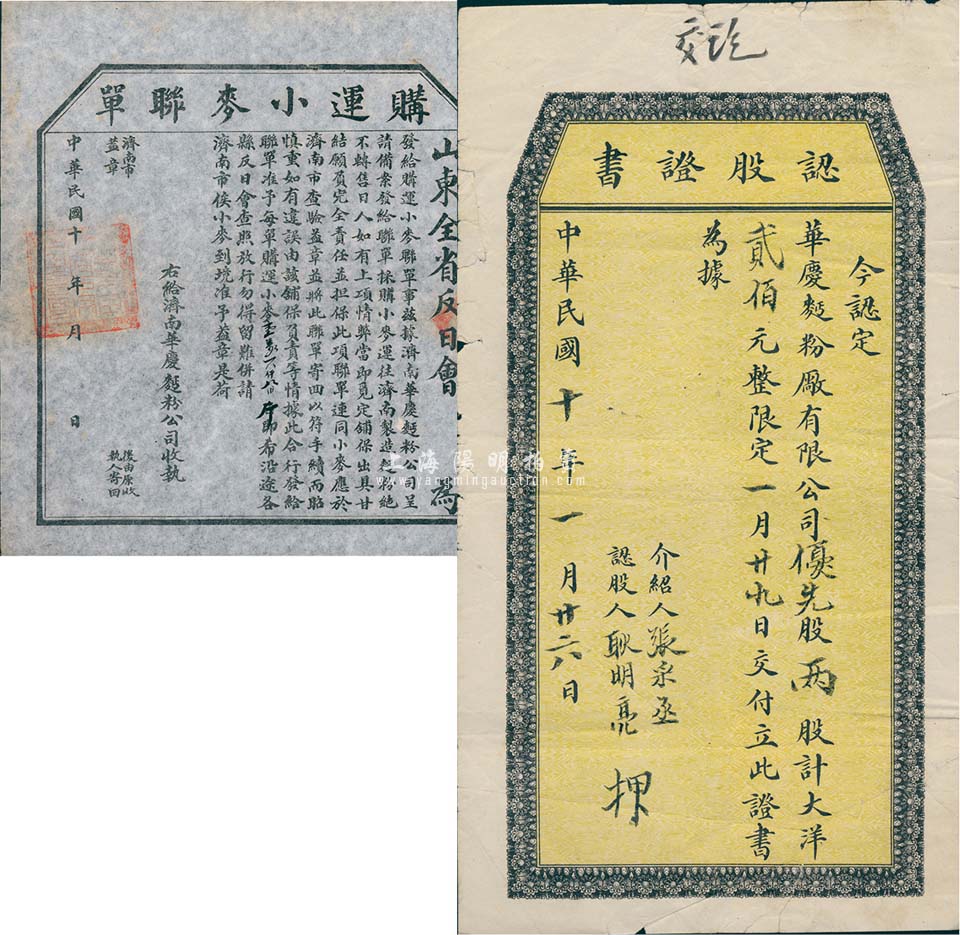 購運小麥聯單
山東全省反日會
為
發給購運小麥聯單事茲據濟南華慶麪粉公司呈
請備案發給聯單採購小麥運往濟南製造麪粉絕
不轉售日人如有上項情弊當即覓定舖保出具甘
結願負完全責任並担保此項聯單連同小麥應於
濟南市查驗蓋章並將此聯單寄回以符手續而昭
慎重如有違誤由該舖保負責等情據此合行發給
聯單准予每單購運小麥
即希沿途各
縣反日會查照放行勿得留難併請
濟南市俟小麥到境准予蓋章是荷
右給濟南華慶麪粉公司收執
後由原收
執人寄回
濟南市
蓋章
中華民國十 年 月 日
交訖
認股證書
今認定
華慶麪粉廠有限公司優先股兩股計大洋
貳佰元整限定一月廿九日交付立此證書
為據
介紹人張泉丞
認股人耿明亮 押
中華民國十年一月廿六日
上海陽明拍賣
www.yangmingauction.com